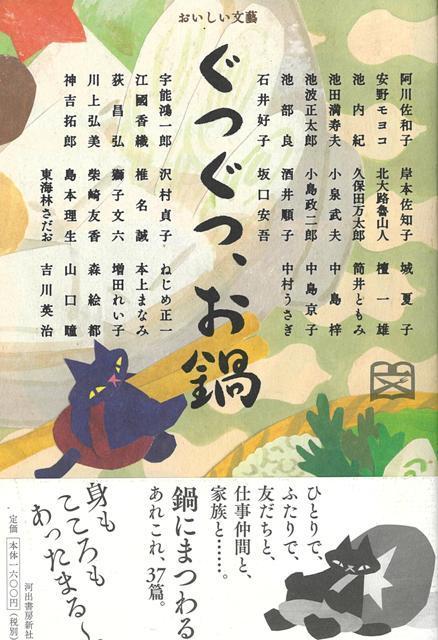 おいしい文藝
ぐつぐつ、お鍋
阿川佐和子　岸本佐知子　城　夏子
安野モヨコ　北大路魯山人　檀　一雄
池内　紀　久保田万太郎　筒井ともみ
池田満寿夫　小泉武夫　中島　梓
池波正太郎　小島政二郎　中島京子
池部　良　酒井順子　中村うさぎ
石井好子　坂口安吾
宇能鴻一郎　沢村貞子　ねじめ正一
江國香織　椎名　誠　本上まなみ
荻　昌弘　獅子文六　増田れい子
川上弘美　柴崎友香　森　絵都
神吉拓郎　島本理生　山口　瞳
東海林さだお　吉川英治
ひとりで、
ふたりで、
友だちと、
仕事仲間と、
家族と……。
鍋にまつわる
あれこれ、37篇。
身も
こころも
あったまる〜。
河出書房新社
定価　本体一六〇〇円（税別）